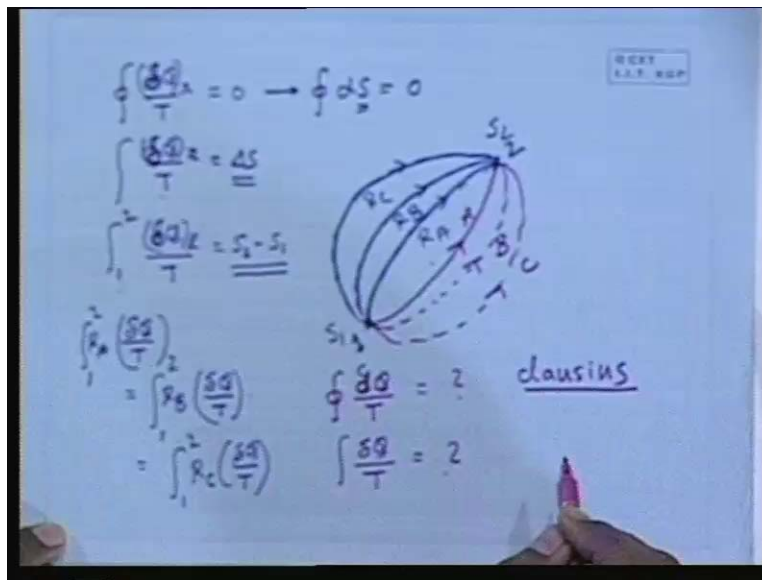 © CET
I.I.T. KGP
∮ (δQ)R/T = 0 → ∮ dS = 0
∫ (δQ)R/T = ΔS
∫₁² (δQ)R/T = S₂ - S₁
∫₁² RA (δQ/T)
= ∫₁² RB (δQ/T)
= ∫₁² RC (δQ/T)
S₂, 2
RC
RB
RA
A
B
C
S₁, 1
∮ δQ/T = ?
∫ δQ/T = ?
Clausius